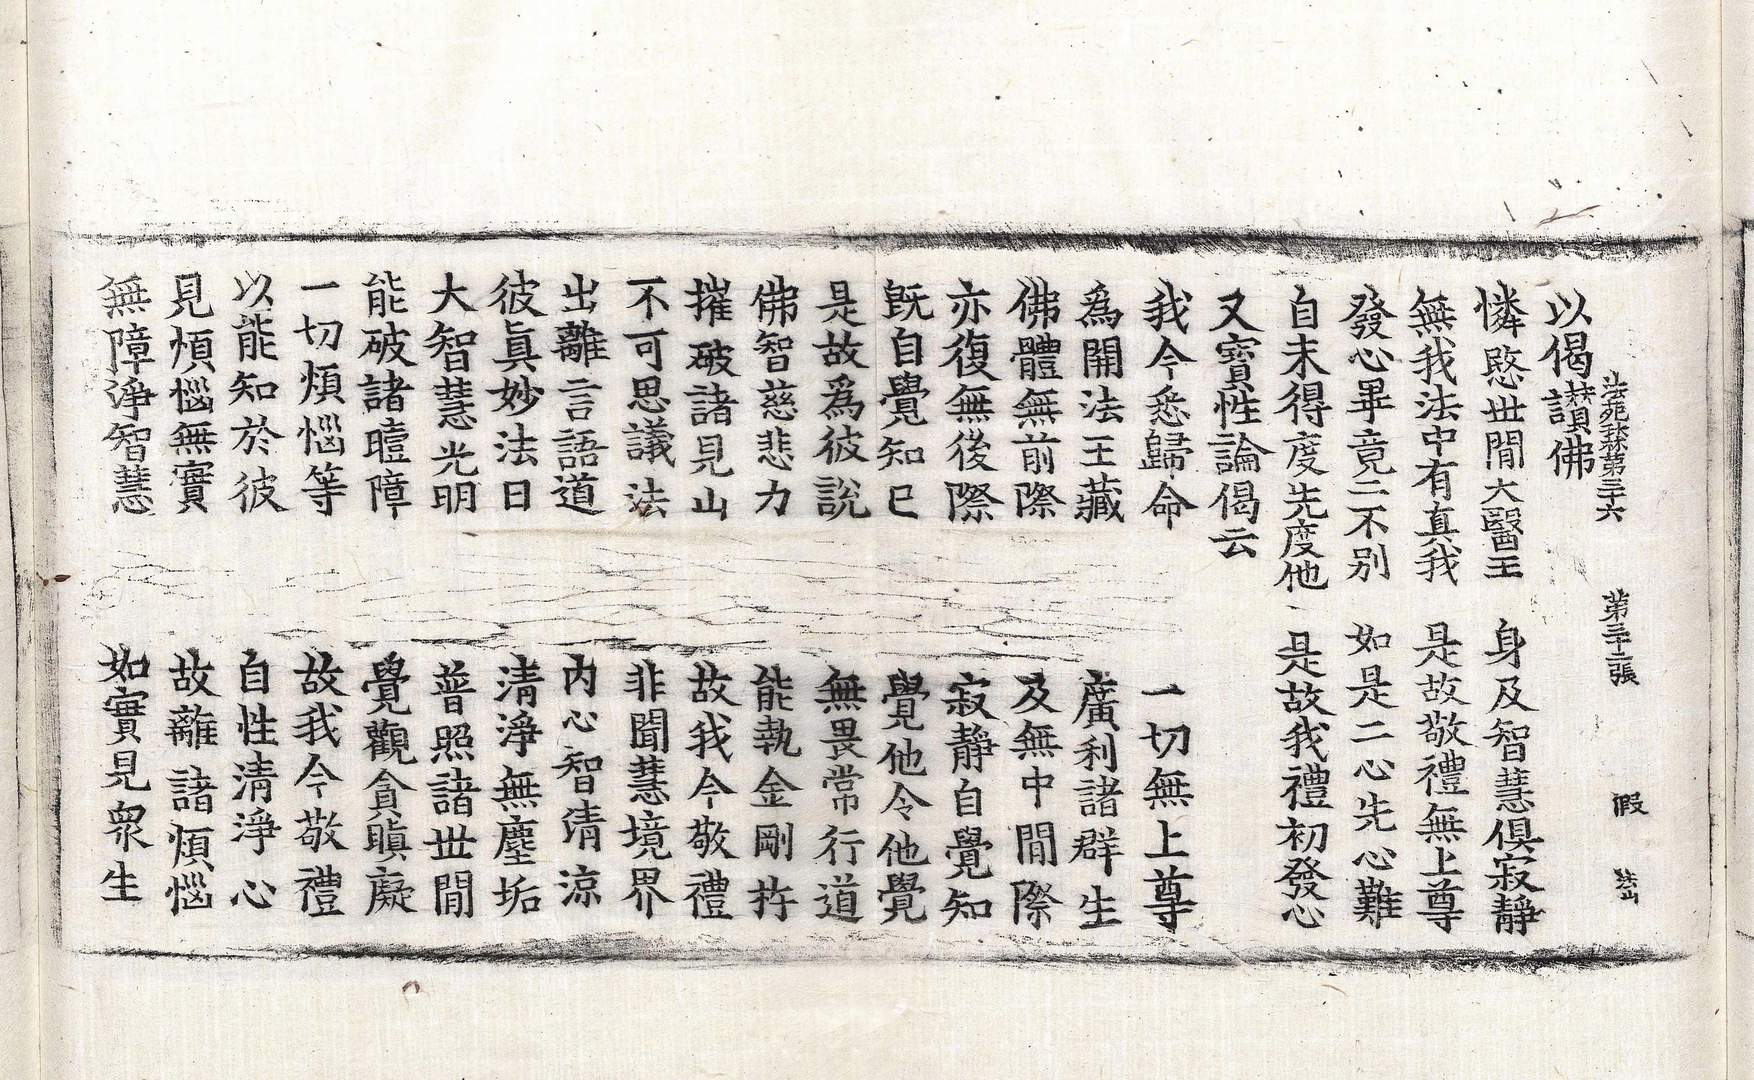 法苑珠林第三十六　第三十二張　假　法山
以偈讃佛
憐愍世間大醫王　身及智慧俱寂靜
無我法中有真我　是故敬禮無上尊
發心畢竟二不別　如是二心先心難
自未得度先度他　是故我禮初發心
又寶性論偈云
我今悉歸命　一切無上尊
爲開法王藏　廣利諸群生
佛體無前際　及無中間際
亦復無後際　寂靜自覺知
既自覺知已　覺他令他覺
是故爲彼說　無畏常行道
佛智慈悲力　能執金剛杵
摧破諸見山　故我今敬禮
不可思議法　非聞慧境界
出離言語道　內心智清涼
彼眞妙法日　清淨無塵垢
大智慧光明　普照諸世間
能破諸曀障　覺觀貪瞋癡
一切煩惱等　故我今敬禮
以能知於彼　自性清淨心
見煩惱無實　故離諸煩惱
無障淨智慧　如實見衆生